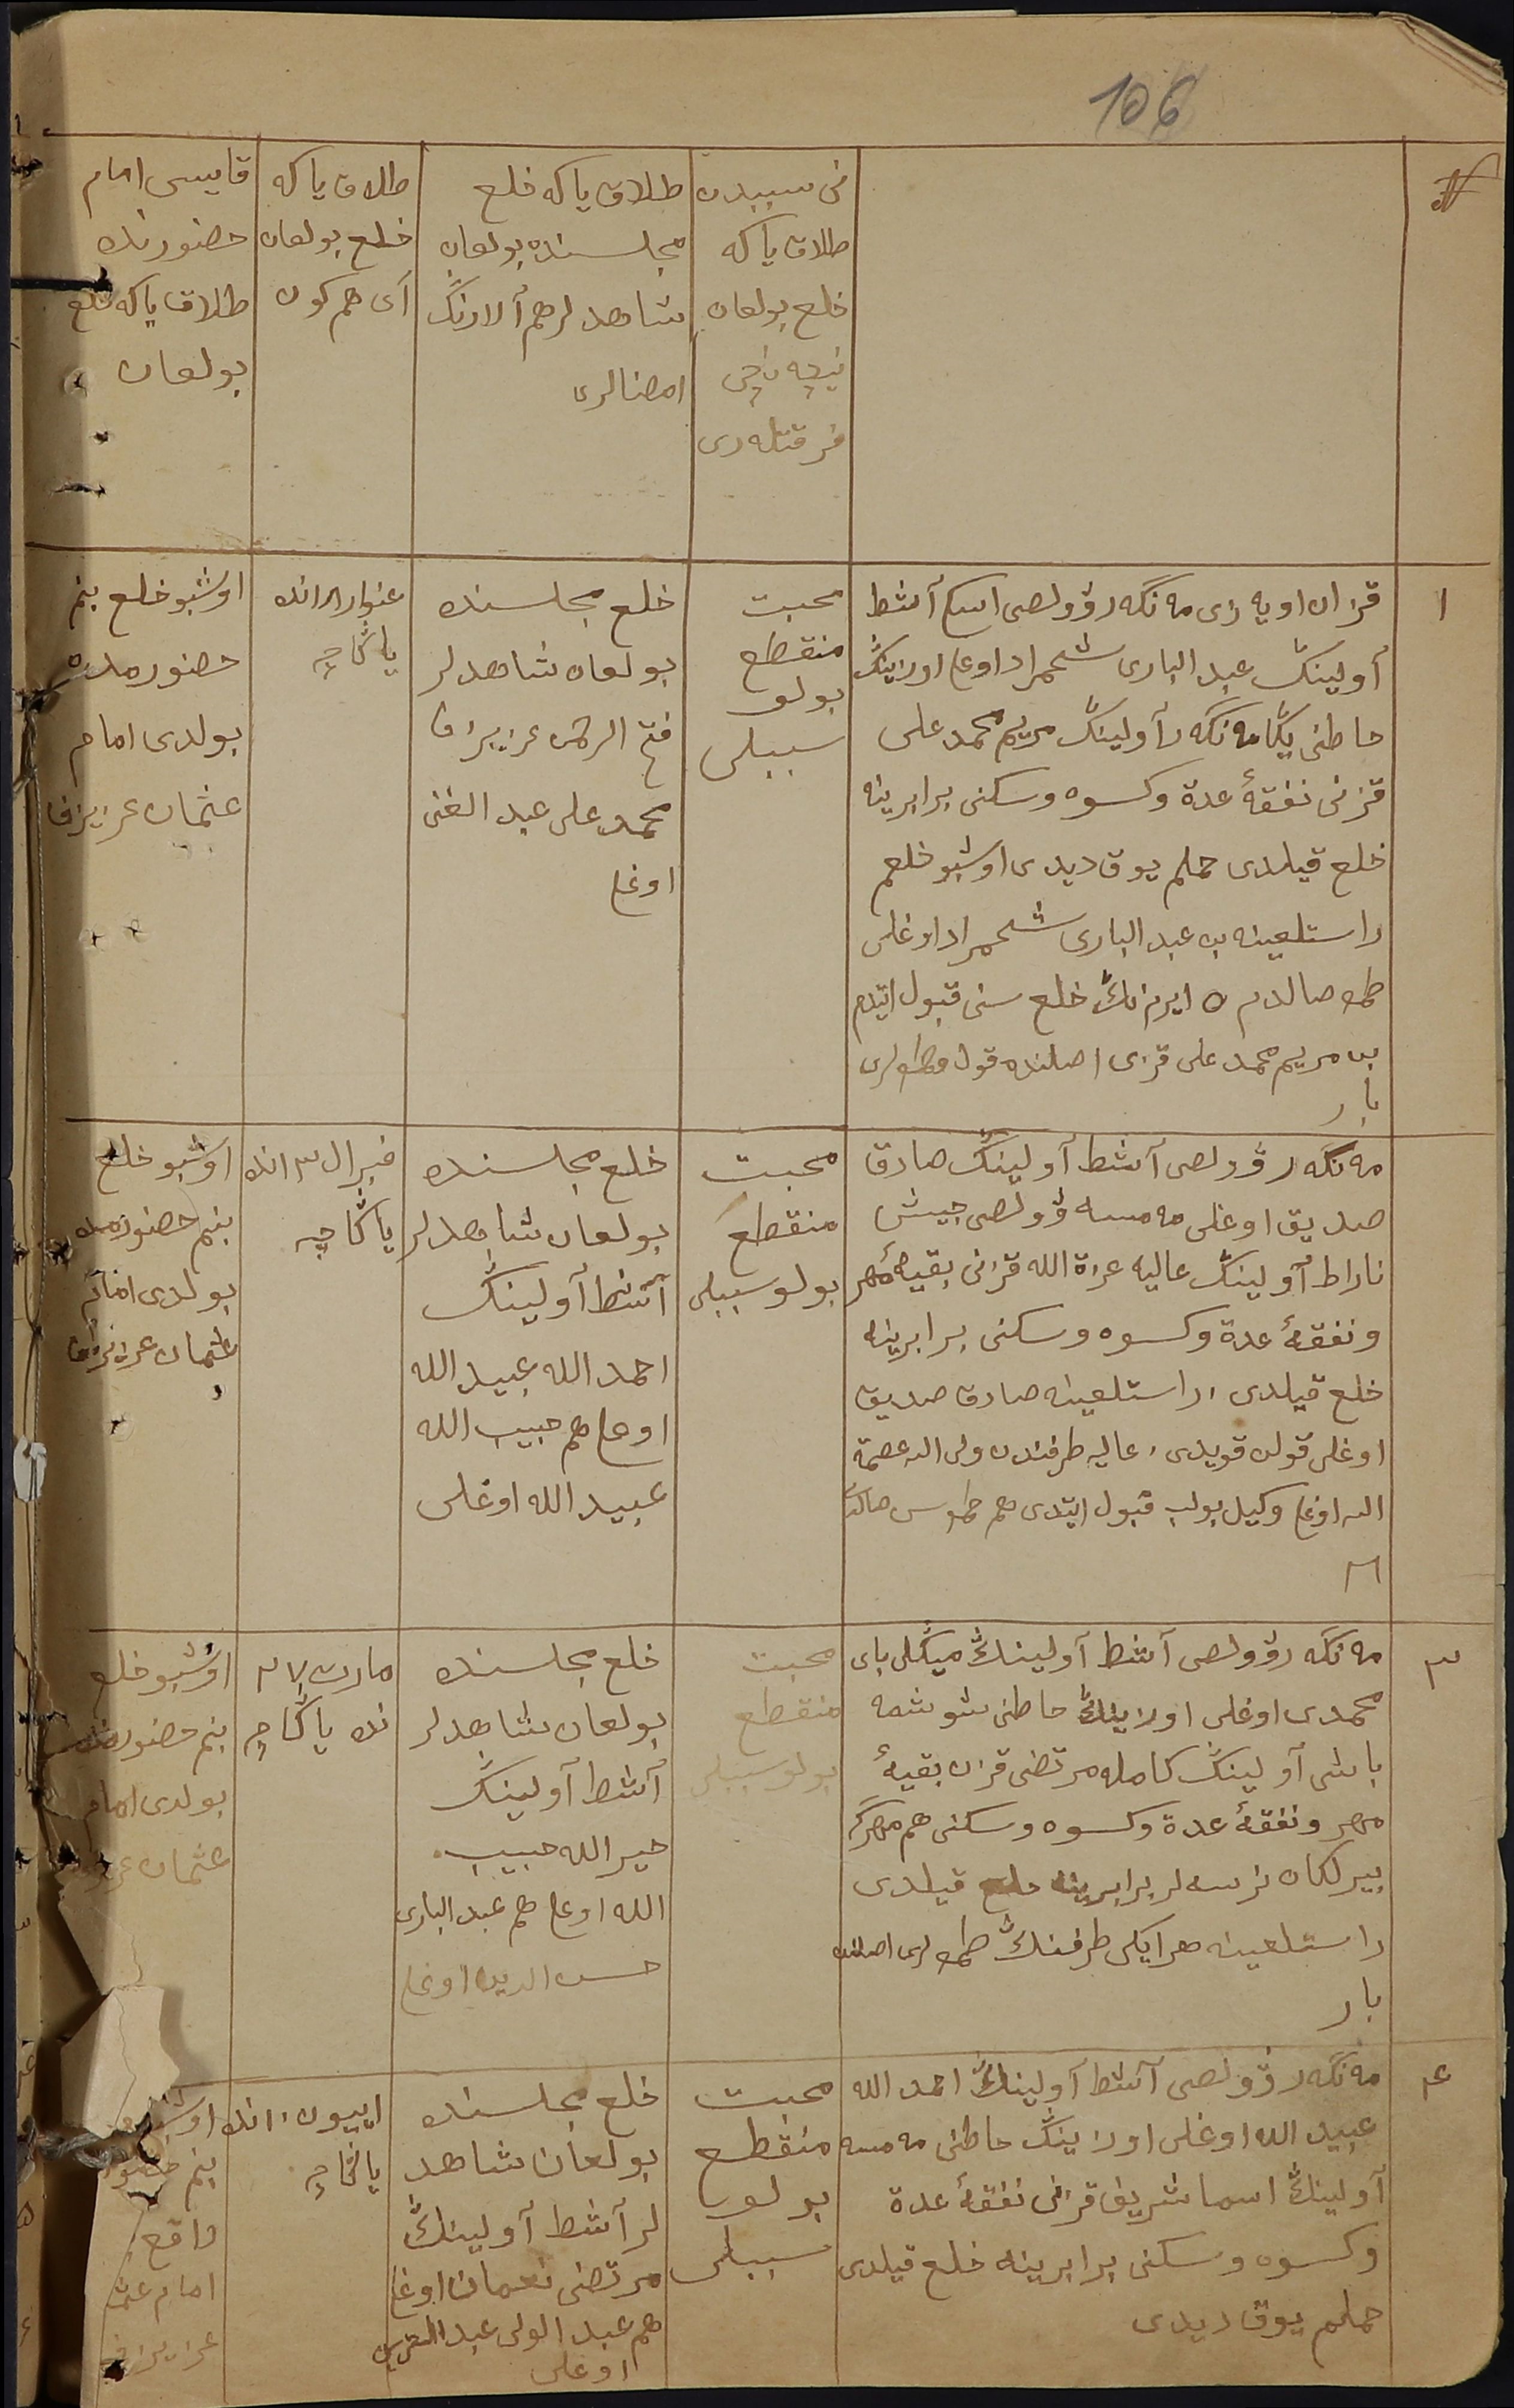 106
№
نی سببدن
طلاق یا که
خلع بولغان
نیچه نچی
فرقتله ری
طلاق یا که خلع
مجلسنده بولغان
شاهدلر هم آلارنڭ
امضالری
طلاق یا که
خلع بولغان
آی هم کون
قایسی امام
حضورنده
طلاق یا که خلع
بولغان
۱
قزان اویه زی مه نگه ر ۋولصی آشط
أولینڭ عبد الباری شحمراد اوغلی اوزینڭ
خاطنی مه نگه ر أولینڭ مریم محمد علی
قزنی نفقهٔ عدة وکسوه وسکنی برابرینه
خلع قیلدی حملم یوق دیدی اوشبو خلعم
راستلغینه عبد الباری شحمراد اوغلی
صالدم ایرمنڭ خلع سنی قبول ایتدم
مریم محمد علی قزی اصلنده قول
بار
محبت
منقطع
بولو
سببلی
خلع مجلسنده
بولغان شاهدلر
فتح الرحمن عزیزف
محمد علی عبد الغنی
اوغلی
غنوار انده
یاڭاچه
اوشبو خلع بنم
حضورمده
بولدی امام
عثمان عزیزف
مه نگه ر ۋولصی آشط أولینڭ صادق
صدیق اوغلی مه مسه ۋولصی
ناراط أولینڭ عالیه عزة الله قزنی بقیهٔ مهر
ونفقهٔ عدة وکسوه وسکنی برابرینه
خلع قیلدی، راستلغینه صادق صدیق
اوغلی قولن قویدی، عالیه طرفندن ولی الله عصمة
الله اوغلی وکیل بولب قبول ایتدی هم
محبت
منقطع
بولو سببلی
خلع مجلسنده
بولغان شاهدلر
آشط أولینڭ
احمد الله عبید الله
اوغلی هم حبیب الله
عبید الله اوغلی
فبرال ۳ انده
یاڭاچه
اوشبو خلع
بنم حضورمده
بولدی امام
عثمان عزیزف
۳
مه نگه ر ۋولصی آشط أولینڭ میڭلی بای
محمدی اوغلی اوزینڭ خاطنی شوشمه
باشی أولینڭ کامله مرتضی قزن بقیهٔ
مهر ونفقهٔ عدة وکسوه وسکنی هم مهرگه
بیرلکان نرسه لر برابرینه خلع قیلدی
راستلغینه هر ایکی طرفنڭ اصلنده
بار
محبت
منقطع
بولو سببلی
خلع مجلسنده
بولغان شاهدلر
آشط أولینڭ
خیر الله حبیب
الله اوغلی هم عبد الباری
حسن الدین اوغلی
مارت ۲۷
نده یاڭاچه
اوشبو خلع
بنم حضورمده
بولدی امام
عثمان
۴
مه نگه ر ۋولصی آشط أولینڭ احمد الله
عبید الله اوغلی اوزینڭ خاطنی مه مسه
أولینڭ اسما شریف قزنی نفقهٔ عدة
وکسوه وسکنی برابرینه خلع قیلدی
حملم یوق دیدی
محبت
منقطع
بولو
سببلی
خلع مجلسنده
بولغان شاهد
لر آشط أولینڭ
مرتضی نعمان اوغلی
هم عبد الولی عبد العزیز
اوغلی
اییون ۱۰ نده
یاڭاچه
بنم
واقع
امام
عزیزف